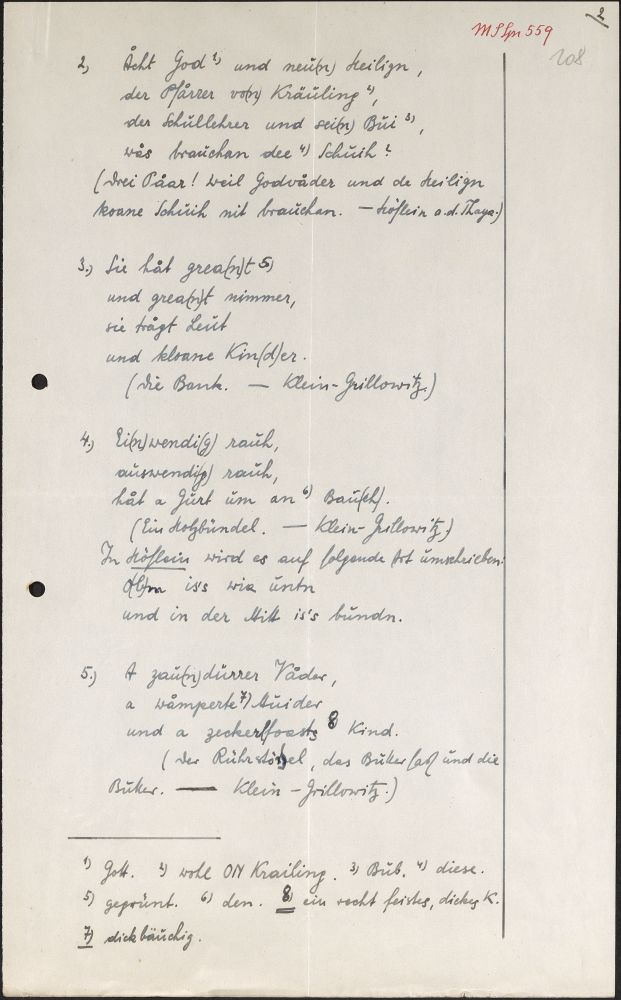 2
MSgn 559
208
2, Åcht God 1) und neu(n) Heilign,
der Pfårrer vo(n) Kräuling 2),
der Schullehrer und sei(n) Bui 3),
wås brauchan dee 4) Schuih?
(Drei Påar! Weil Godvåder und de Heilign
koane Schuih nit brauchan. — Höflein a.d. Thaya.)
3.) Sie håt grea(n)t 5)
und grea(n)t nimmer,
sie trågt Leut
und kloane Kin(d)er.
(Die Bank. — Klein-Grillowitz.)
4.) Ei(n)wendi(g) rauh,
auswendi(g) rauh,
håt a Gurt um an 6) Bau(ch).
(Ein Holzbündel. — Klein-Grillowitz.)
In Höflein wird es auf folgende Art umschrieben:
O(b)m is's wia untn
und in der Mitt is's bundn.
5.) A zau(n)dürrer Våder,
a wåmperte 7) Muider
und a zeckerlfoasts 8 Kind.
(Der Rührstößel, das Butterfaß und die
Butter. — Klein-Grillowitz.)
1) Gott. 2) wohl ON Krailing. 3) Bub. 4) diese.
5) gegrünt. 6) den. 8) ein recht feistes, dickes K.
7) dickbäuchig.